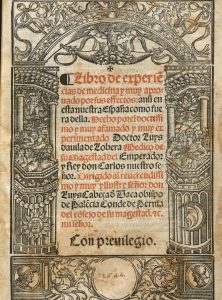 Libro de experiẽ
cias de medicina y muy apro
uado por sus effectos: ansi en
esta nuestra España como fue
ra della. Hecho por el doctissi
mo y muy afamado y muy ex
perimentado Doctor Luys
dauila de Lobera Medico de
su Magestad del Emperador
y Rey don Carlos nuestro se
ñor. Dirigido al reuerendissi
mo y muy yllustre señor don
Luys Cabeça d Vaca obispo
de Palẽcia Conde de Pernia
del cõsejo de su magestad. ⁊c.
mi señor.
Con preuilegio.
1544